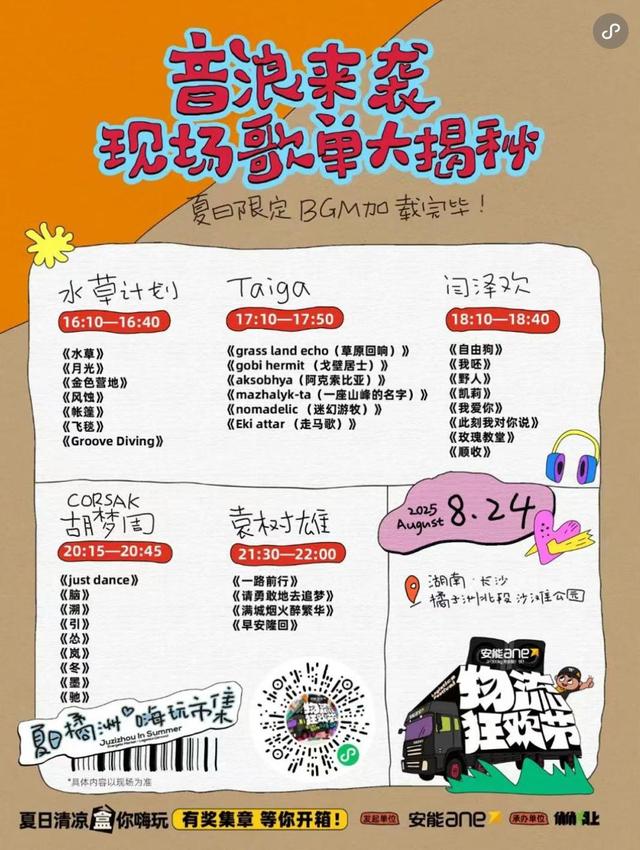 音浪来袭
现场歌单大揭秘
夏日限定 BGM加载完毕！
水草计划
16:10—16:40
《水草》
《月光》
《金色营地》
《风蚀》
《帐篷》
《飞毯》
《Groove Diving》
Taiga
17:10—17:50
《grass land echo（草原回响）》
《gobi hermit （戈壁居士）》
《aksobhya（阿克索比亚）》
《mazhalyk-ta（一座山峰的名字）》
《nomadelic（迷幻游牧）》
《Eki attar （走马歌）》
闫泽欢
18:10—18:40
《自由狗》
《我呸》
《野人》
《凯莉》
《我爱你》
《此刻我对你说》
《玫瑰教堂》
《顺收》
CORSAK
胡梦周
20:15—20:45
《just dance》
《脑》
《溯》
《引》
《怂》
《岚》
《冬》
《墨》
《驰》
袁树雄
21:30—22:00
《一路前行》
《请勇敢地去追梦》
《满城烟火醉繁华》
《早安隆回》
2025
August 8.24
湖南·长沙
橘子洲北段沙滩公园
安能ane
物流
狂欢节
夏日橘洲嗨玩市集
Juzizhou In Summer
*具体内容以现场为准
夏日清凉盒你嗨玩
有奖集章 等你开箱！
发起单位
安能ane
承办单位